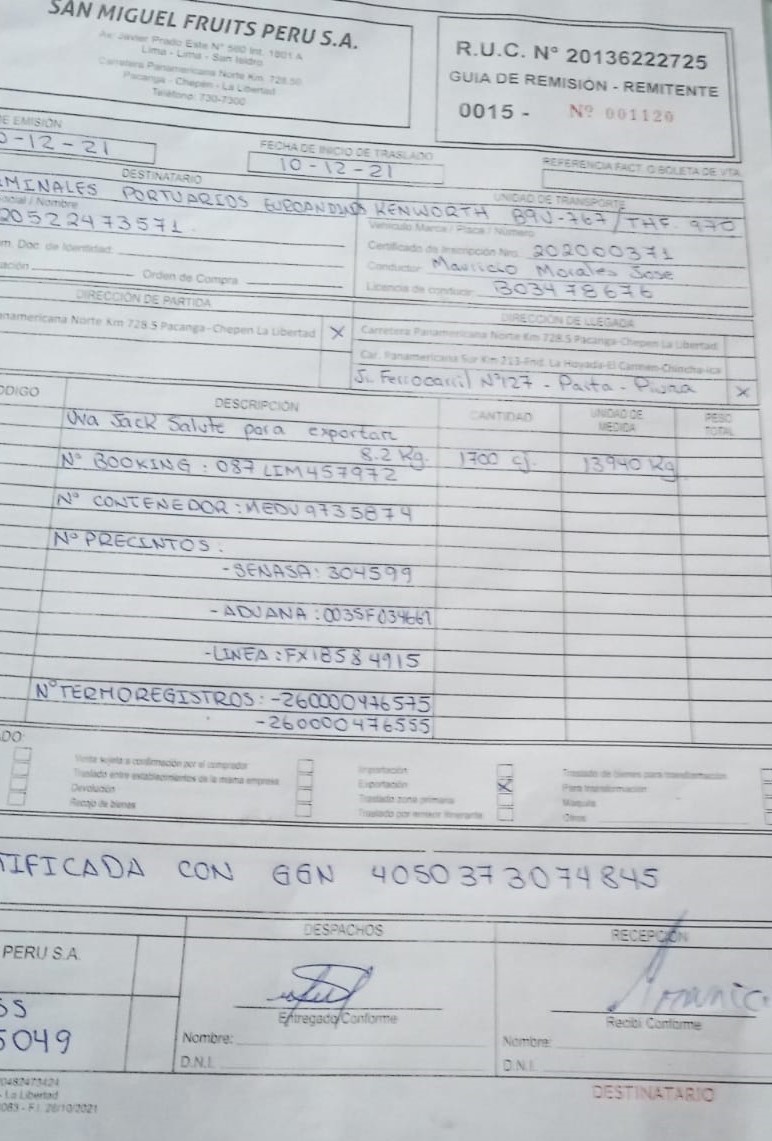 SAN MIGUEL FRUITS PERU S.A.
Av. Javier Prado Este N° 560 Int. 1801 A
Lima - Lima - San Isidro
Carretera Panamericana Norte Km. 728.50
Pacanga - Chepén - La Libertad
Teléfono: 730-7300
R.U.C. N° 20136222725
GUIA DE REMISIÓN - REMITENTE
0015 - Nº 001120
E EMISIÓN
0-12-21
FECHA DE INICIO DE TRASLADO
10-12-21
REFERENCIA FACT. O BOLETA DE VTA.
DESTINATARIO
UNIDAD DE TRANSPORTE
MINALES PORTUARIOS EUROANDINOS
KENWORTH B9U-767/THF. 970
ocial / Nombre
Vehículo Marca / Placa / Número
20522473571.
Certificado de Inscripción Nro. 202000371
m. Doc. de Identidad:
Conductor Mauricio Morales Jose
ación Orden de Compra
Licencia de conducir B03478676
DIRECCIÓN DE PARTIDA
DIRECCIÓN DE LLEGADA
namericana Norte Km 728.5 Pacanga-Chepen La Libertad X
Carretera Panamericana Norte Km 728.5 Pacanga-Chepen La Libertad
Car. Panamericana Sur Km 213-Fnd. La Hoyada-El Carmen-Chincha-Ica
Jr. Ferrocarril N°127 - Paita - Piura X
ODIGO DESCRIPCIÓN CANTIDAD UNIDAD DE MEDIDA PESO TOTAL
Uva Jack Salute para exportar
8.2 Kg. 1700 cj. 13940 Kg
N° BOOKING : 087LIM457972
N° CONTENEDOR : MEDU9735874
N° PRECINTOS :
- SENASA : 304599
- ADUANA : 0035F034661
- LINEA : FX18584915
N° TERMOREGISTROS : - 260000476575
- 260000476555
DO:
Venta sujeta a confirmación por el comprador
Traslado entre establecimientos de la misma empresa
Devolución
Recojo de bienes
Importación
Exportación X
Traslado zona primaria
Traslado por emisor itinerante
Traslado de bienes para transformación
Para transformación
Maquila
Otros
TIFICADA CON GGN 4050373074845
PERU S.A.
DESPACHOS
RECEPCIÓN
Entregado Conforme
Recibí Conforme
5049
Nombre:
D.N.I.
Nombre:
D.N.I.
DESTINATARIO
- La Libertad
083 - F.I. 26/10/2021